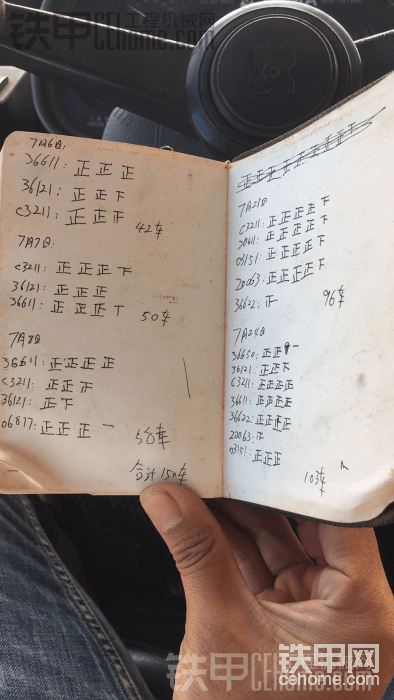 铁甲 工程机械网
cehome.com
7月6日:
36611: 正 正 正
36121: 正 正 下
C3211: 正 正 正
42车
7月7日:
C3211: 正 正 正 下
36121: 正 正 正
36611: 正 正 正 丅
50车
7月8日:
36611: 正 正 正 正
C3211: 正 正 下
36121: 正 下
06877: 正 正 正 一
58车
合计150车
7月23日:
C3211: 正 正 正 正 下
20611: 正 正 正 正 下
03151: 正 正 正 正 下
20063: 正 正 正 正 下
36622: 正
96车
7月24日:
36650: 正 正 一
36121: 正 正 下
C3211: 正 正 正 正
36611: 正 正 正 正
36622: 正 正 正 正
20063: 下
03151: 正 正 正
103车
铁甲网
cehome.com